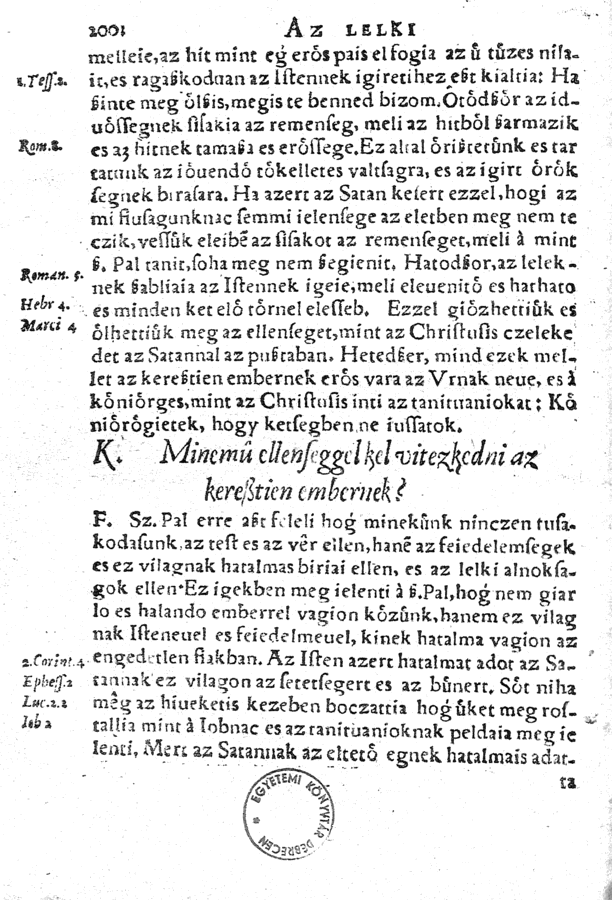 2001
AZ LELKI
melleie, az hit mint eg erȯs pais el fogia az ů tůzes nila-
1. Teſſ. 2. it, es ragaßkodnan az Iſtennek igiretihez eßt kialtia: Ha
ßinte meg ȯlßis, megis te benned bizom. Ȯtȯdßȯr az id-
uȯſſegnek ſiſakia az remenſeg, meli az hitbȯl ßarmazik
Rom. 8. es az hitnek tamaßa es erȯſſege. Ez altal ȯrißtetůnk es tar
tatunk az iȯuendȯ tȯkelletes valtſagra, es az igirt ȯrȯk
ſegnek biraſara. Ha azert az Satan keſert ezzel, hogi az
mi fiuſagunknac ſemmi ielenſege az eletben meg nem te
czik, veſſůk eleibē az ſiſakot az remenſeget, meli à mint
Roman. 5. ß. Pal tanit, ſoha meg nem ßegienit. Hatodßor, az lelek-
nek ßabliaia az Iſtennek igeie, meli eleuenitȯ es hathato
Hebr 4. es minden ket elȯ tȯrnel eleſſeb. Ezzel giȯzhettiůk es
Marci 4 ȯlhettiůk meg az ellenſeget, mint az Chriſtuſis czeleke
det az Satannal az pußtaban. Hetedßer, mind ezek mel-
let az kereßtien embernek erȯs vara az Vrnak neue, es à
kȯniȯrges, mint az Chriſtuſis inti az tanituaniokat: Kȯ
niȯrȯgietek, hogy ketſegben ne iuſſatok.
K. Minemů ellenſeggel kel vitezkędni az
kereßtien embernek?
F. Sz. Pal erre aßt feleli hoģ minekůnk ninczen tuſa-
kodaſunk, az teſt es az vêr ellen, hanē az feiedelemſegek
es ez vilagnak hatalmas biriai ellen, es az lelki alnokſa-
gok ellen. Ez igekben meg ielenti à ß. Pal, hoģ nem giar
lo es halando emberrel vagion kȯzůnk, hanem ez vilag
nak Iſteneuel es feiedelmeuel, kinek hatalma vagion az
2. Corint. 4 engedetlen fiakban. Az Iſten azert hatalmat adot az Sa-
Epheſſ. 2 tannak ez vilagon az ſetetſegert es az bůnert. Sȯt niha
Luc. 22 mêg az hiueketis kezeben boczattia hoģ ůket meg roſ-
Iob 2 tallia mint à Iobnac es az tanituanioknak peldaia meg ie
lenti, Mert az Satannak az eltetȯ egnek hatalmais adat-
ta
EGYETEMI KÖNYVTÁR DEBRECEN